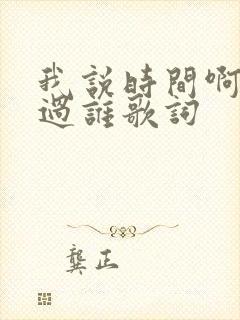 我說時間啊
過誰歌詞
龔正